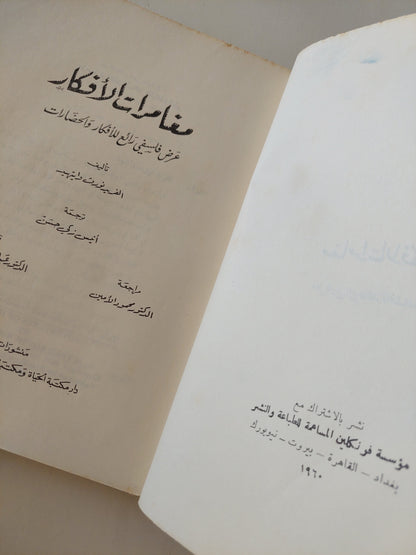 مغامرات الأفكار
عرض فلسفي رائع للأفكار والحضارات
تأليف
الفريد نورث وايتهيد
ترجمة
أنيس زكي حسن
راجعة
الدكتور محمود الأمين
الدكتور
منشورات
دار مكتبة الحياة ومكتبة
نشر بالاشتراك مع
مؤسسة فرنكلين المساهمة للطباعة والنشر
بغداد – القاهرة – بيروت – نيويورك
١٩٦٠